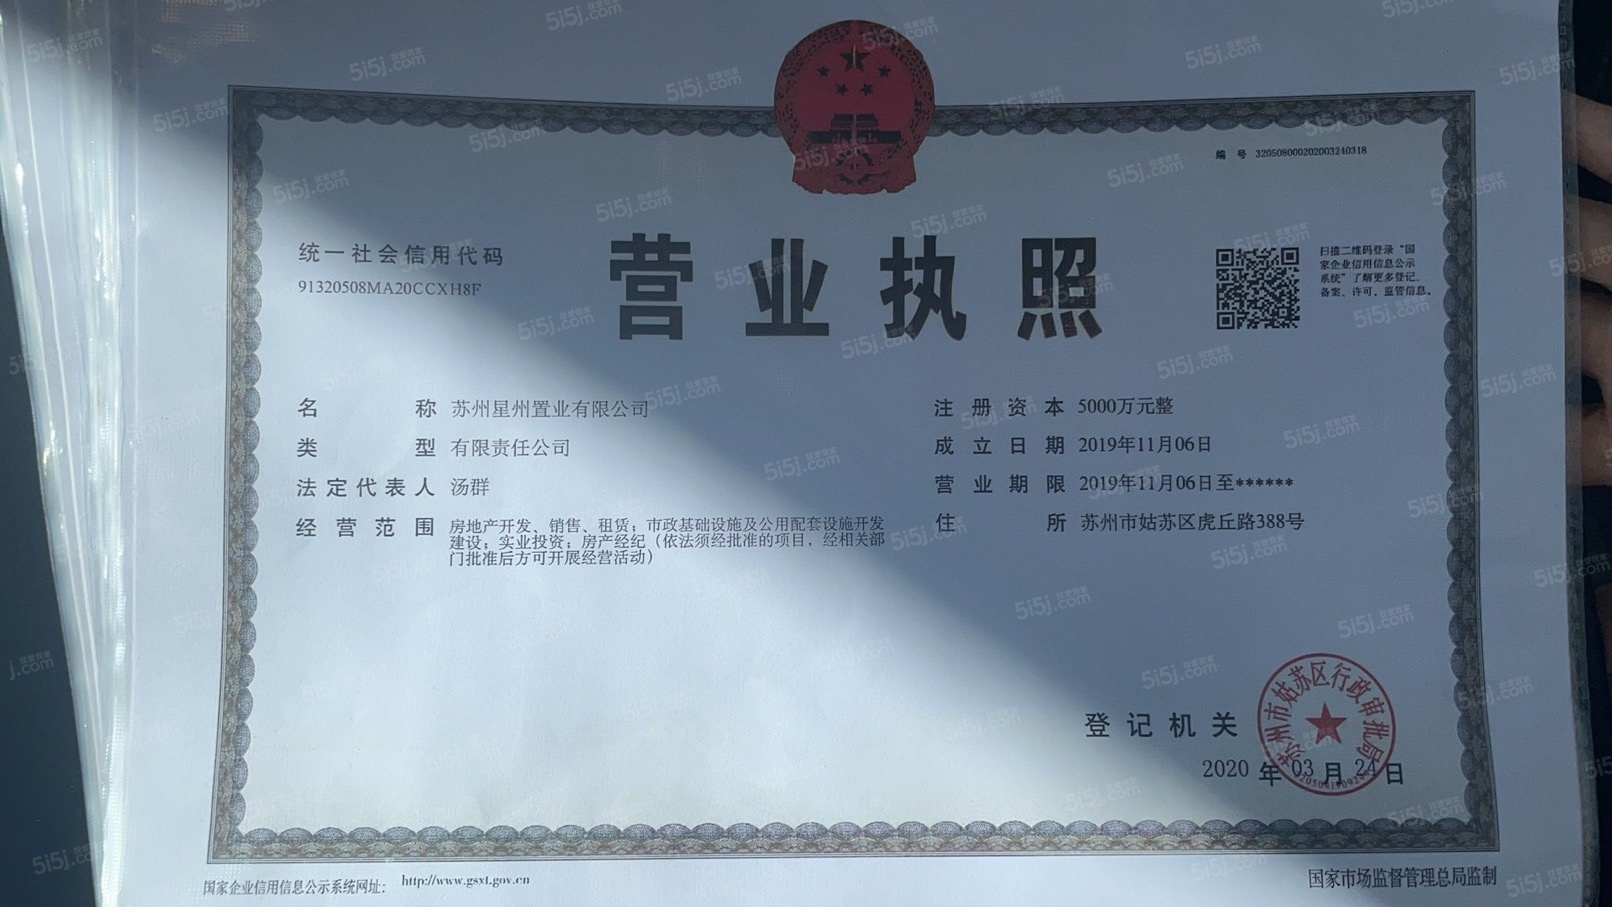 编 号 320508000202003240318
统一社会信用代码
91320508MA20CCXH8F
营业执照
扫描二维码登录“国
家企业信用信息公示
系统”了解更多登记、
备案、许可、监管信息。
名称 苏州星州置业有限公司
类型 有限责任公司
法定代表人 汤群
经营范围 房地产开发、销售、租赁；市政基础设施及公用配套设施开发
建设；实业投资；房产经纪（依法须经批准的项目，经相关部
门批准后方可开展经营活动）
注册资本 5000万元整
成立日期 2019年11月06日
营业期限 2019年11月06日至******
住所 苏州市姑苏区虎丘路388号
登记机关
苏州市姑苏区行政审批局
2020 年 03 月 24 日
国家企业信用信息公示系统网址： http://www.gsxt.gov.cn
国家市场监督管理总局监制
5i5j.com 我爱我家